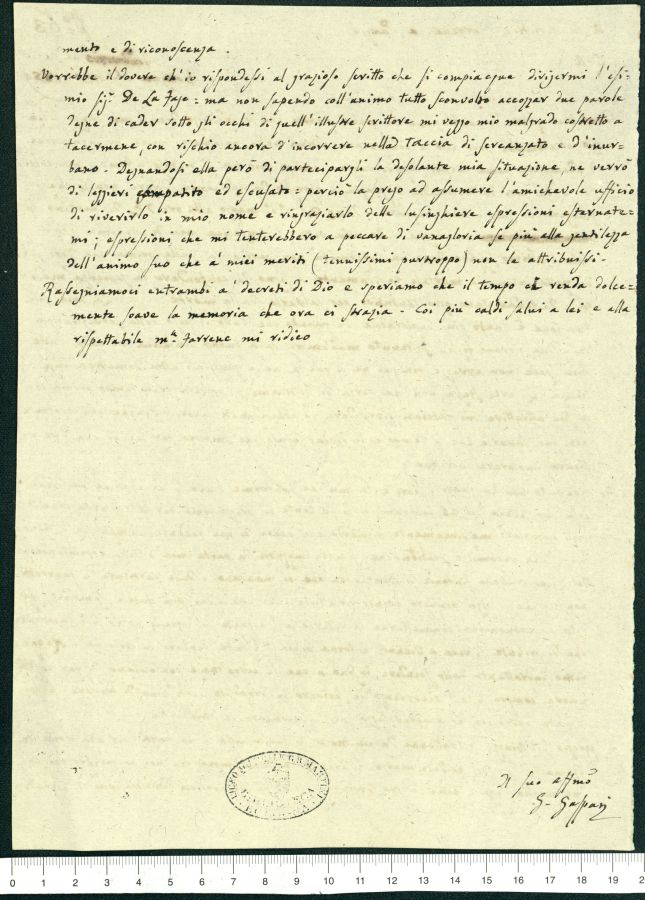 mento e di riconoscenza.
Vorrebbe il dovere ch'io rispondessi al grazioso scritto che si compiacque dirigermi l'esi=
mio sigr. De La Fage: ma non sapendo coll'animo tutto sconvolto accozzar due parole
degne di cader sotto gli occhi di quell'illustre scrittore mi veggo mio malgrado costretto a
tacermene, con rischio ancora d'incorrere nella taccia di screanzato e d'inur=
bano. Degnandosi ella però di partecipargli la desolante mia situazione, ne verrò
di leggieri compatito ed escusato: perciò la prego ad assumere l'amichevole ufficio
di riverirlo in mio nome e ringraziarlo delle lusinghiere espressioni esternate=
mi; espressioni che mi tenterebbero a peccare di vanagloria se più alla gentilezza
dell'animo suo che a' miei meriti (tenuissimi purtroppo) non le attribuissi.
Rassegniamoci entrambi a' decreti di Dio e speriamo che il tempo ci renda dolce=
mente soave la memoria che ora ci strazia. Coi più caldi saluti a lei e alla
rispettabile ma. Farrenc mi ridico
Il suo affmo
G. Gaspari